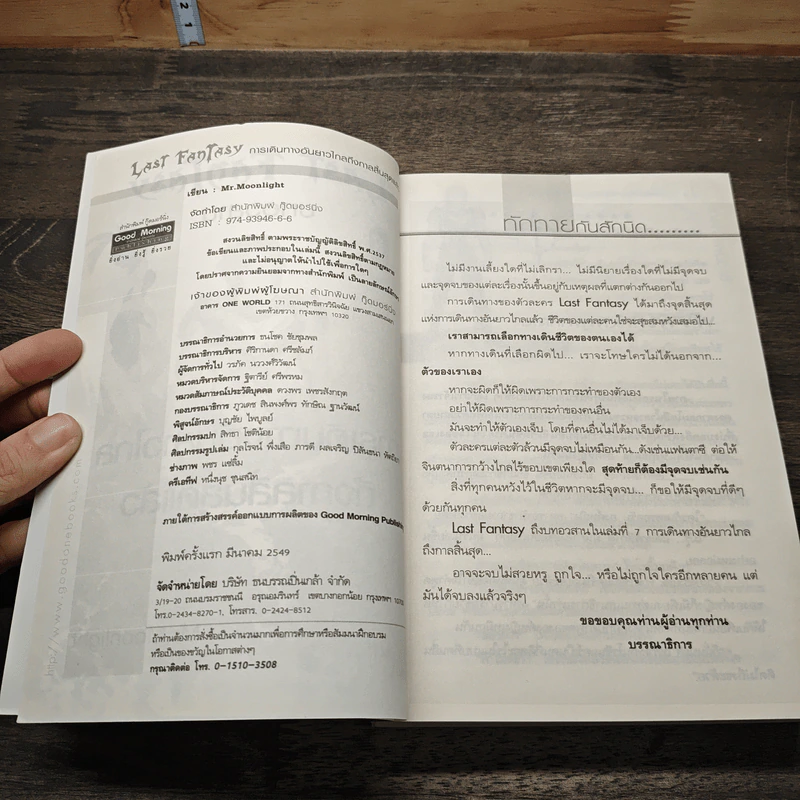 2
1
Last Fantasy การเดินทางอันยาวไกลถึงกาลสิ้นสุด
เขียน : Mr.Moonlight
สำนักพิมพ์ กู๊ดมอร์นิ่ง
Good Morning
ยิ่งอ่าน ยิ่งรู้ ยิ่งรวย
จัดทำโดย สำนักพิมพ์ กู๊ดมอร์นิ่ง
ISBN : 974-93946-6-6
สงวนลิขสิทธิ์ ตามพระราชบัญญัติลิขสิทธิ์ พ.ศ.2537
ข้อเขียนและภาพประกอบในเล่มนี้ สงวนลิขสิทธิ์ตามกฎหมาย
และไม่อนุญาตให้นำไปใช้เพื่อการใดๆ
โดยปราศจากความยินยอมจากทางสำนักพิมพ์ เป็นลายลักษณ์อักษร
เจ้าของผู้พิมพ์ผู้โฆษณา สำนักพิมพ์ กู๊ดมอร์นิ่ง
อาคาร ONE WORLD 171 ถนนสุทธิสารวินิจฉัย แขวงสามเสนนอก
เขตห้วยขวาง กรุงเทพฯ 10320
บรรณาธิการอำนวยการ ธนโชค ชัยชุมพล
บรรณาธิการบริหาร ศิริกานดา ศรีชลัมภ์
ผู้จัดการทั่วไป วรภัค นววงศ์วิวัฒน์
หมวดบริหารจัดการ ฐิตารีย์ ศรีพรหม
หมวดสัมภาษณ์ประวัติบุคคล ดวงพร เพชรสังกฤต
กองบรรณาธิการ ภูวเดช สินพงศ์พร ทักษิณ ฐานวัฒน์
พิสูจน์อักษร บุญชัย ไพบูลย์
ศิลปกรรมปก สิทธา โชติน้อย
ศิลปกรรมรูปเล่ม กุลโรจน์ พึ่งเสือ ภารดี ผลเจริญ ปิลันธนา
ช่างภาพ พชร แซ่ลิ้ม
ครีเอทีฟ หนึ่งนุช ขุนสนิท
ภายใต้การสร้างสรรค์ออกแบบการผลิตของ Good Morning Publishing
พิมพ์ครั้งแรก มีนาคม 2549
จัดจำหน่ายโดย บริษัท ธนบรรณปิ่นเกล้า จำกัด
3/19-20 ถนนบรมราชชนนี อรุณอมรินทร์ เขตบางกอกน้อย กรุงเทพฯ 10700
โทร.0-2434-8270-1, โทรสาร. 0-2424-8512
ถ้าท่านต้องการสั่งซื้อเป็นจำนวนมากเพื่อการศึกษาหรือสัมมนาฝึกอบรม
หรือเป็นของขวัญในโอกาสต่างๆ
กรุณาติดต่อ โทร. 0-1510-3508
http://www.goodonebooks.com
ทักทายกันสักนิด.........
ไม่มีงานเลี้ยงใดที่ไม่เลิกรา... ไม่มีนิยายเรื่องใดที่ไม่มีจุดจบ
และจุดจบของแต่ละเรื่องนั้นขึ้นอยู่กับเหตุผลที่แตกต่างกันออกไป
การเดินทางของตัวละคร Last Fantasy ได้มาถึงจุดสิ้นสุด
แห่งการเดินทางอันยาวไกลแล้ว ชีวิตของแต่ละคนใช่จะสุขสมหวังเสมอไป...
เราสามารถเลือกทางเดินชีวิตของตนเองได้
หากทางเดินที่เลือกผิดไป... เราจะโทษใครไม่ได้นอกจาก...
ตัวของเราเอง
หากจะผิดก็ให้ผิดเพราะการกระทำของตัวเอง
อย่าให้ผิดเพราะการกระทำของคนอื่น
มันจะทำให้ตัวเองเจ็บ โดยที่คนอื่นไม่ได้มาเจ็บด้วย...
ตัวละครแต่ละตัวล้วนมีจุดจบไม่เหมือนกัน...ดังเช่นแฟนตาซี ต่อให้
จินตนาการกว้างไกลไร้ขอบเขตเพียงใด สุดท้ายก็ต้องมีจุดจบเช่นกัน
สิ่งที่ทุกคนหวังไว้ในชีวิตหากจะมีจุดจบ... ก็ขอให้มีจุดจบที่ดีๆ
ด้วยกันทุกคน
Last Fantasy ถึงบทอวสานในเล่มที่ 7 การเดินทางอันยาวไกล
ถึงกาลสิ้นสุด...
อาจจะจบไม่สวยหรู ถูกใจ... หรือไม่ถูกใจใครอีกหลายคน แต่
มันได้จบลงแล้วจริงๆ
ขอขอบคุณท่านผู้อ่านทุกท่าน
บรรณาธิการ